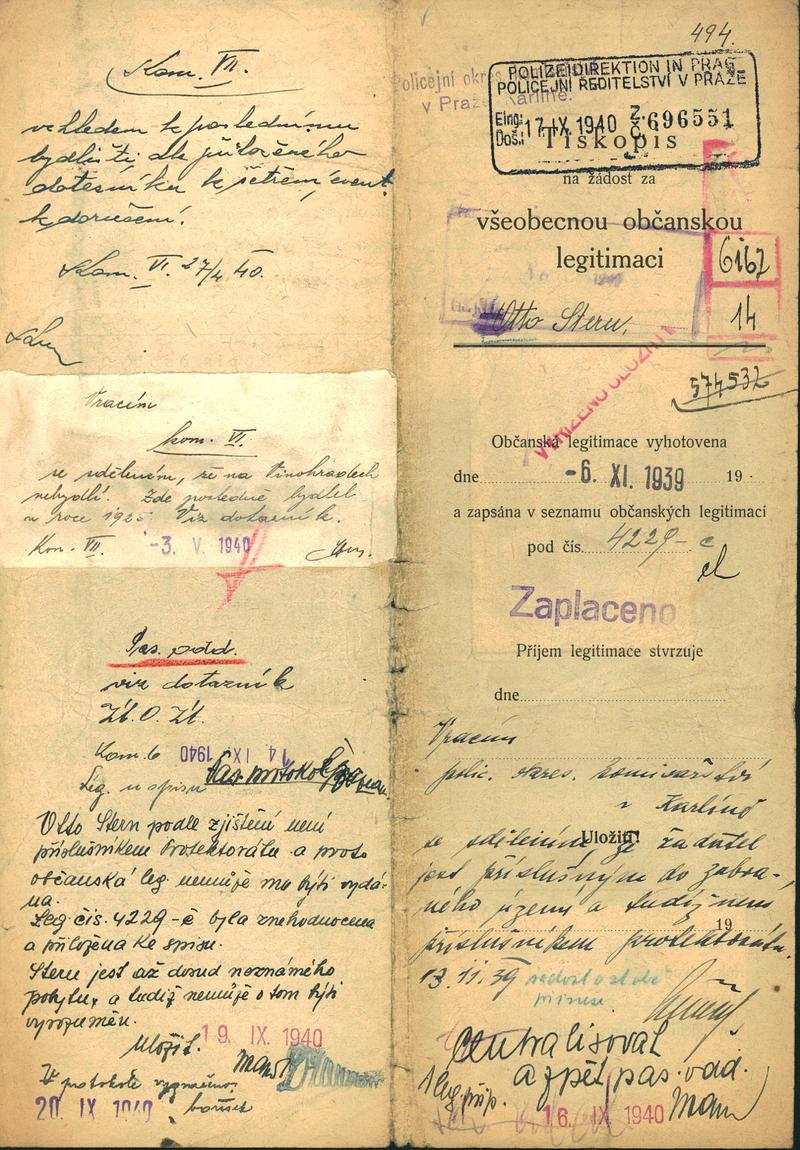 Kom. VII.
vzhledem k poslednímu
bydlišti dle přiloženého
dotazníku k šetření, event.
k doručení.
Kom. VI. 27/4 40.
Vracím
kom. VI.
se sdělením, že na Vinohradech
nebydlí. Zde posledně bydlel
v roce 1925. Viz dotazník.
Kom. VII. -3. V. 1940
Pas. odd.
viz dotazník
Zb. O. Zb.
Kom. 6 14 IX 1940
Leg. u spisu
Pas. protokol
Otto Stern podle zjištění není
příslušníkem Protektorátu a proto
občanská leg. nemůže mu býti vydá-
na.
Leg. čís. 4229-č byla znehodnocena
a přiložena ke spisu.
Stern jest až dosud neznámého
pobytu, a tudíž nemůže o tom býti
vyrozuměn.
Uložit.
19. IX. 1940
V protokole vyznačeno.
20. IX 1940
494.
Policejní okres
v Praze Karlíně.
POLIZEIDIREKTION IN PRAG
POLICEJNÍ ŘEDITELSTVÍ V PRAZE
Eing: Doš.: 17 IX. 1940 Z. Č. 696551
Tiskopis
na žádost za
všeobecnou občanskou
legitimaci
6167
14
Otto Stern.
574532
Občanská legitimace vyhotovena
dne -6. XI. 1939 19 -
a zapsána v seznamu občanských legitimací
pod čís. 4229-c
Zaplaceno
Příjem legitimace stvrzuje
dne
Vracím
polic. okres. komisařství
v Karlíně
se sdělením, že žadatel
Uložiti!
jest příslušným do zabra-
ného území a tudíž není
19
příslušníkem protektorátu.
13.11.39
Centralisovat
a zpět pas. odd.
1 leg. příp.
16. IX 1940